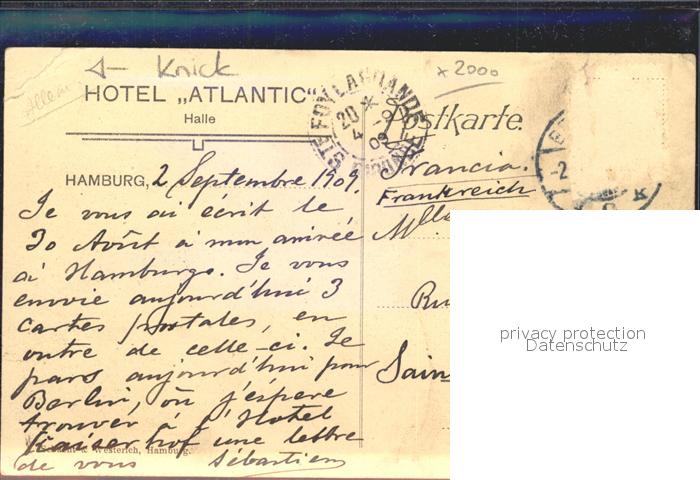 Knick
x 2000
HOTEL „ATLANTIC“
Halle
Postkarte.
STE FOY LA GRANDE
20 *
4 -9
09
GIRONDE
-2
HAMBURG, 2 Septembre 1909.
Je vous ai écrit le
30 Août à mon arrivée
à Hamburgo. Je vous
envoie aujourd'hui 3
cartes postales, en
outre de celle-ci. Je
pars aujourd'hui pour
Berlin, où j'éspere
trouver à l'Hotel
Kaiserhof une lettre
de vous Sébastien
& Westerich, Hamburg.
Francia.
Frankreich
Mlle
Ru
Sain
privacy protection
Datenschutz